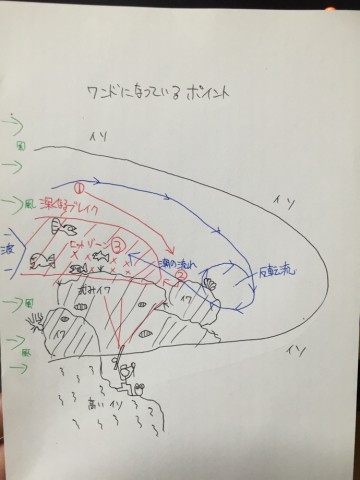 ワンドになっているポイント
イソ
風
イソ
①
風
深くなるブレイク
ヒットゾーン③
波
潮の流れ
②
反転流
沈みイワ
イワ
風
イワ
イワ
風
イソ
高いイソ